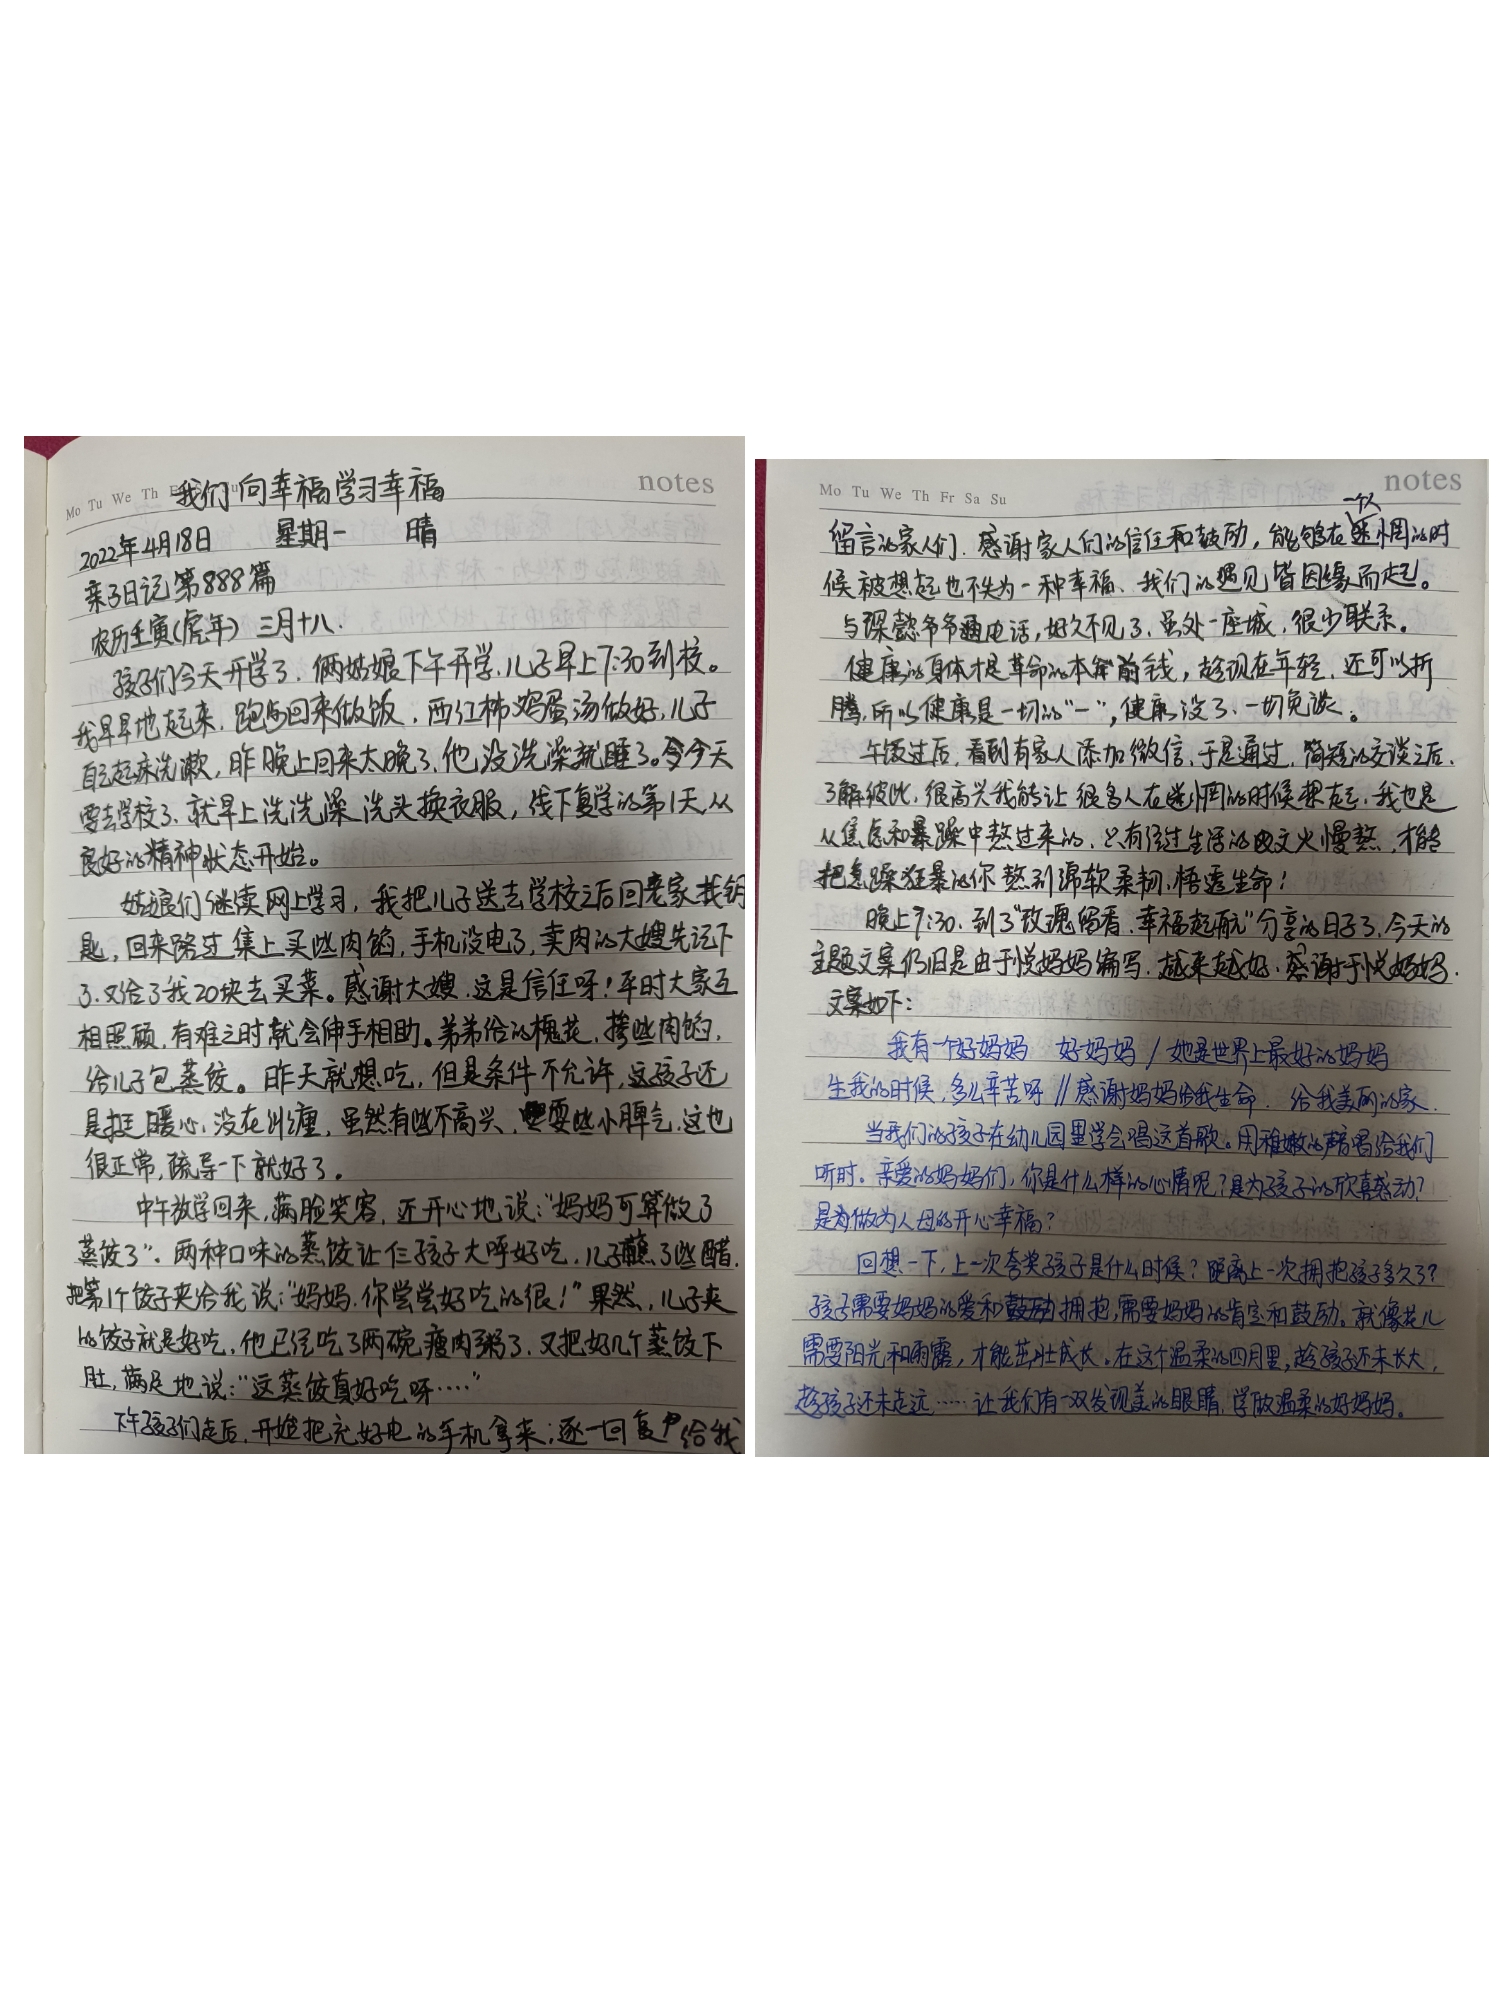 notes
Mo Tu We Th
我们向幸福学习幸福
2022年4月18日 星期一 晴
亲子日记第888篇
农历壬寅(虎年) 三月十八.
孩子们今天开学了.俩姑娘下午开学.儿子早上7:30到校。
我早早地起来.跑步回来做饭.西红柿鸡蛋汤做好.儿子
自己起床洗漱,昨晚上回来太晚了.他没洗澡就睡了。今天
要去学校了.就早上洗洗澡洗头换衣服,线下复学的第1天.从
良好的精神状态开始。
姑娘们继续网上学习,我把儿子送去学校之后回老家找钥
匙,回来路过集上买些肉馅,手机没电了,卖肉的大嫂先记下
了.又给了我20块去买菜。感谢大嫂.这是信任呀!平时大家互
相照顾,有难之时就会伸手相助。弟弟给的槐花,掺些肉馅,
给儿子包蒸饺。昨天就想吃,但是条件不允许,这孩子还
是挺暖心,没在纠缠,虽然有些不高兴,耍些小脾气.这也
很正常,疏导一下就好了。
中午放学回来,满脸笑容,还开心地说:“妈妈可算做了
蒸饺了”.两种口味的蒸饺让仨孩子大呼好吃,儿子蘸了些醋.
把第1个饺子夹给我说:“妈妈.你尝尝好吃的很!”果然,儿子夹
的饺子就是好吃,他已经吃了两碗瘦肉粥了.又把好几个蒸饺下
肚,满足地说:“这蒸饺真好吃呀····”
下午孩子们走后,开始把充好电的手机拿来;逐一回复给我
Mo Tu We Th Fr Sa Su
notes
留言的家人们.感谢家人们的信任和鼓励,能够在一个人迷惘的时
候被想起也不失为一种幸福、我们的遇见皆因缘而起。
与琛懿爷爷通电话,好久不见了.虽处一座城,很少联系。
健康的身体才是革命的本前钱,趁现在年轻.还可以折
腾,所以健康是一切的“一”,健康没了.一切免谈。
午饭过后,看到有家人添加微信.于是通过.简短的交谈之后.
了解彼此.很高兴我能让很多人在迷惘的时候想起.我也是
从焦虑和暴躁中熬过来的.只有经过生活的文火慢熬.才能
把急躁狂暴的你熬到绵软柔韧.悟透生命!
晚上9:30.到了“玫瑰留香.幸福起航”分享的日子了.今天的
主题文案仍旧是由于悦妈妈编写.越来越好.感谢于悦妈妈.
文案如下:
我有一个好妈妈 好妈妈/她是世界上最好的妈妈
生我的时候,多么辛苦呀//感谢妈妈给我生命.给我美丽的家.
当我们的孩子在幼儿园里学会唱这首歌。用稚嫩的声音唱给我们
听时.亲爱的妈妈们,你是什么样的心情呢?是为孩子的欣喜感动?
是为做为人母的开心幸福?
回想一下,上一次夸奖孩子是什么时候?距离上一次拥抱孩子多久了?
孩子需要妈妈的爱和拥抱,需要妈妈的肯定和鼓励。就像花儿
需要阳光和雨露,才能茁壮成长.在这个温柔的四月里,趁孩子还未长大,
趁孩子还未走远……让我们有一双发现美的眼睛,学做温柔的好妈妈。